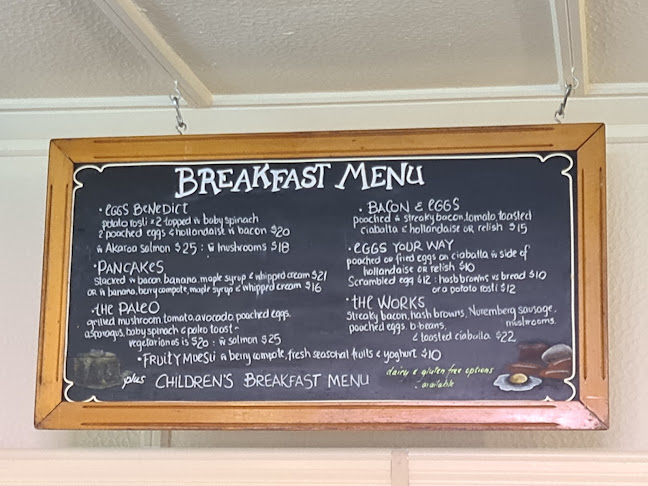 BREAKFAST MENU
• EGGS BENEDICT
potato rosti x 2 topped w baby spinach
2 poached eggs & hollandaise w bacon $20
w Akaroa salmon $25 : w mushrooms $18
• PANCAKES
stacked w bacon, banana, maple syrup & whipped cream $21
OR w banana, berry compote, maple syrup & whipped cream $16
• the PALEO
grilled mushroom, tomato, avocado, poached eggs,
asparagus, baby spinach & paleo toast -
vegetarian as is $20 : w salmon $25
• FRUITY MUESLI w berry compote, fresh seasonal fruits & yoghurt $10
plus CHILDREN'S BREAKFAST MENU
• BACON & EGGS
poached w streaky bacon, tomato, toasted
ciabatta & hollandaise OR relish $15
• EGGS YOUR WAY
poached or fried eggs on ciabatta w side of
hollandaise OR relish $10
Scrambled egg $12 : hash browns vs bread $10
or a potato rosti $12
• the WORKS
Streaky bacon, hash browns, Nuremberg sausage,
poached eggs, b-beans, mushrooms,
& toasted ciabatta $22
dairy & gluten free options
: available